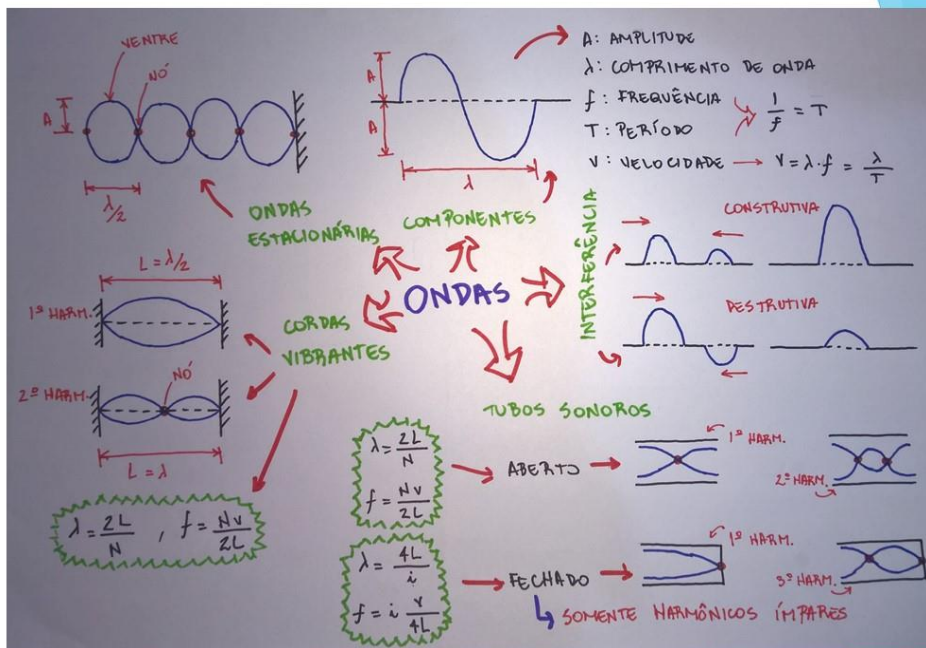 VENTRE
NÓ
A
λ/2
ONDAS
ESTACIONÁRIAS
A
A
λ
COMPONENTES
A: AMPLITUDE
λ: COMPRIMENTO DE ONDA
f: FREQUÊNCIA
T: PERÍODO
1/f = T
V: VELOCIDADE → V = λ.f = λ/T
INTERFERÊNCIA
CONSTRUTIVA
DESTRUTIVA
ONDAS
CORDAS
VIBRANTES
L = λ/2
1º HARM.
NÓ
2º HARM.
L = λ
λ = 2L/N , f = Nv/2L
TUBOS SONOROS
λ = 2L/N
f = Nv/2L
ABERTO
1º HARM.
2º HARM.
λ = 4L/i
f = i v/4L
FECHADO
1º HARM.
3º HARM.
SOMENTE HARMÔNICOS ÍMPARES